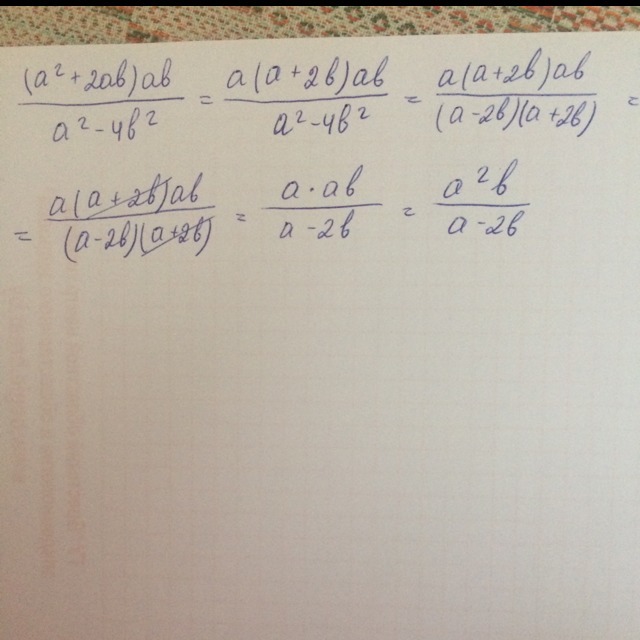 (a²+2ab)ab / a²-4b² = a(a+2b)ab / a²-4b² = a(a+2b)ab / (a-2b)(a+2b) =
= a(a+2b)ab / (a-2b)(a+2b) = a·ab / a-2b = a²b / a-2b